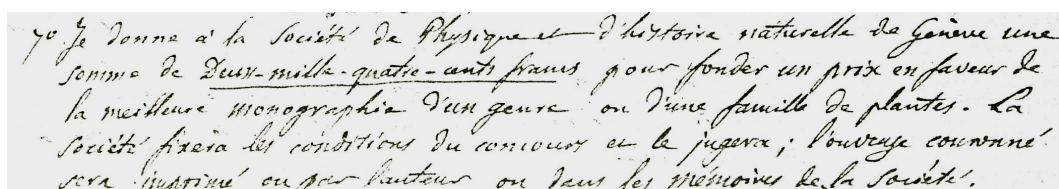 7° Je donne à la Société de Physique et d'histoire naturelle de Genève une
somme de Deux-mille-quatre-cents francs pour fonder un prix en faveur de
la meilleure monographie d'un genre ou d'une famille de plantes. La
Société fixera les conditions du concours et le jugera ; l'ouvrage couronné
sera imprimé ou par l'auteur ou dans les mémoires de la Société.